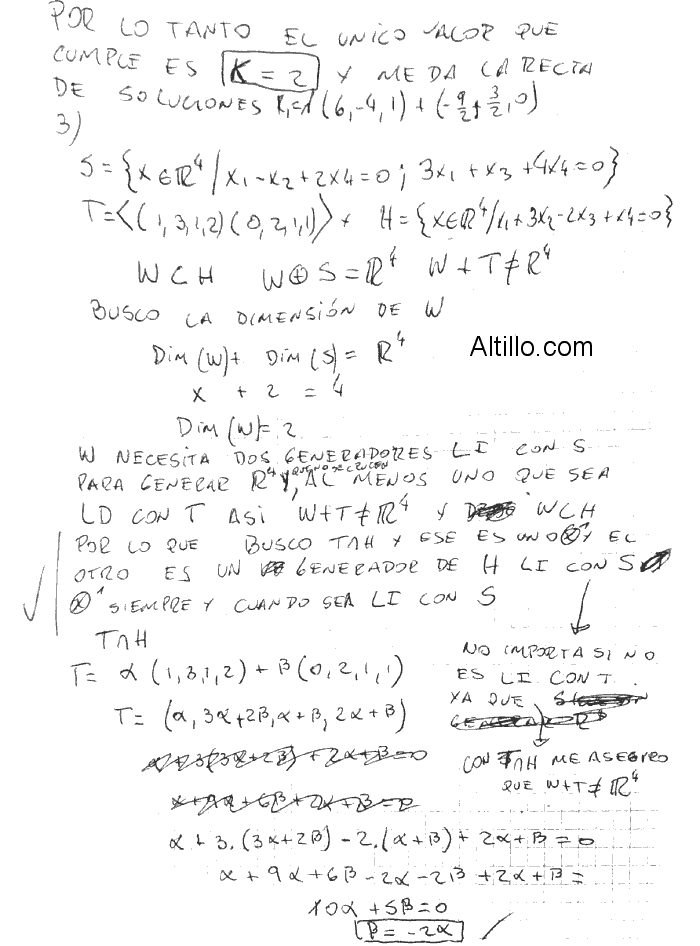 POR LO TANTO EL UNICO VALOR QUE
CUMPLE ES K = 2 Y ME DA LA RECTA
DE SOLUCIONES (6,-4,1) + (-9/2, 3/2, 0)
3)
S = {X∈ℝ⁴ / X₁ - X₂ + 2X4 = 0 ; 3X₁ + X₃ + 4X4 = 0}
T = <(1,3,1,2)(0,2,1,1)> Y H = {X∈ℝ⁴ / X₁ + 3X₂ - 2X₃ + X4 = 0}
W ⊂ H W ⊕ S = ℝ⁴ W + T ≠ ℝ⁴
BUSCO LA DIMENSIÓN DE W
Altillo.com
Dim (W) + Dim (S) = ℝ⁴
X + 2 = 4
Dim (W) = 2
W NECESITA DOS GENERADORES LI CON S
PARA GENERAR ℝ⁴ Y, AL MENOS UNO QUE SEA
LD CON T ASI W+T ≠ ℝ⁴ Y W⊂H
POR LO QUE BUSCO T∩H Y ESE ES UNO Y EL
OTRO ES UN GENERADOR DE H LI CON S
SIEMPRE Y CUANDO SEA LI CON S
T∩H
T = α (1,3,1,2) + β (0,2,1,1)
T = (α, 3α+2β, α+β, 2α+β)
NO IMPORTA SI NO
ES LI CON T.
YA QUE
CON T∩H ME ASEGURO
QUE W+T ≠ ℝ⁴
α + 3.(3α+2β) - 2.(α+β) + 2α+β = 0
α + 9α + 6β - 2α - 2β + 2α + β =
10α + 5β = 0
β = -2α